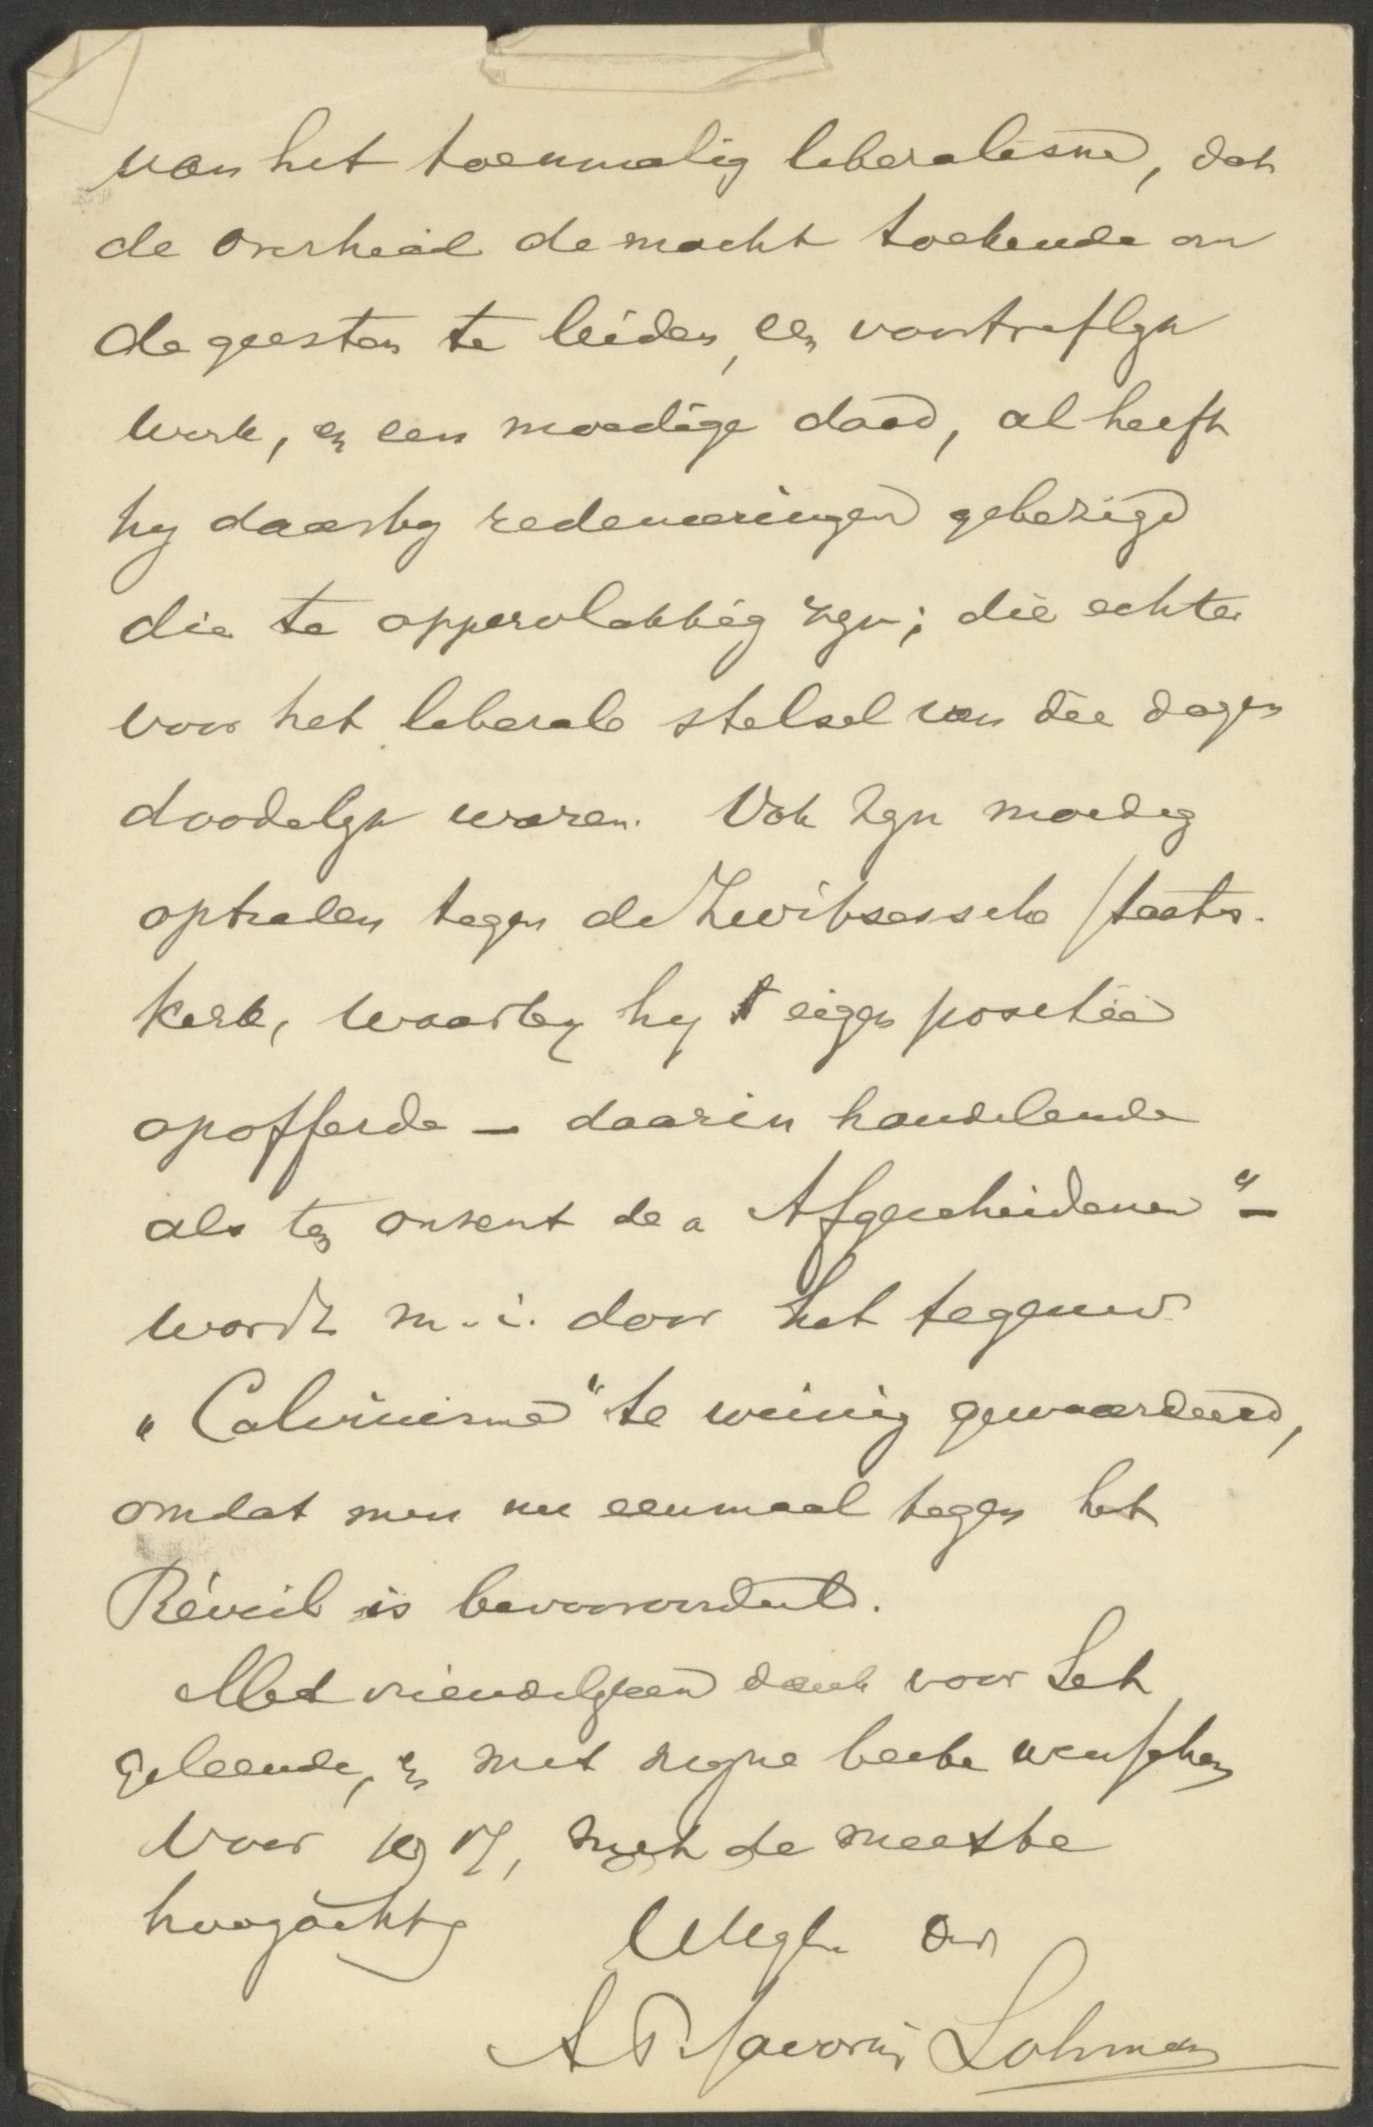 van het toenmalig liberalisme, dat
de overheid de macht toekende om
de geesten te leiden, een voortreflyk
werk, en een moedige daad, al heeft
hy daarby redeneeringen gebezigd
die te oppervlakkig zyn; die echter
voor het liberale stelsel van die dagen
doodelyk waren. Ook zyn moedig
optreden tegen de Zwitsersche staats-
kerk, waarby hy eigen positie
opofferde — daarin handelende
als ten onzent de „Afgescheidenen" —
wordt m.i. door het tegenw.
„Calvinisme" te weinig gewaardeerd,
omdat men nu eenmaal tegen het
Réveil is bevooroordeeld.
Met vriendelyken dank voor het
geleende, en met myne beste wenschen
voor 1917, met de meeste
hoogachtg
A F. Savornin Lohman